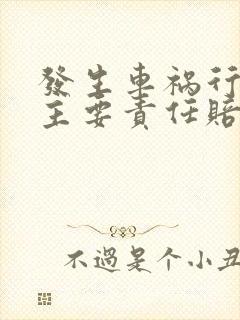 發生車祸行
主要責任賠
不過是个小丑